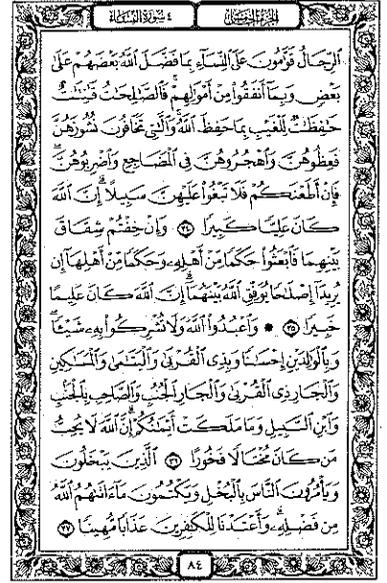 الجزء الخامس
٤ سورة النساء
الرِّجَالُ قَوَّامُونَ عَلَى النِّسَاءِ بِمَا فَضَّلَ اللَّهُ بَعْضَهُمْ عَلَىٰ
بَعْضٍ وَبِمَا أَنفَقُوا مِنْ أَمْوَالِهِمْ ۚ فَالصَّالِحَاتُ قَانِتَاتٌ
حَافِظَاتٌ لِّلْغَيْبِ بِمَا حَفِظَ اللَّهُ ۚ وَالَّاتِي تَخَافُونَ نُشُوزَهُنَّ
فَعِظُوهُنَّ وَاهْجُرُوهُنَّ فِي الْمَضَاجِعِ وَاضْرِبُوهُنَّ ۖ
فَإِنْ أَطَعْنَكُمْ فَلَا تَبْغُوا عَلَيْهِنَّ سَبِيلًا ۗ إِنَّ اللَّهَ
كَانَ عَلِيًّا كَبِيرًا ٣٤ وَإِنْ خِفْتُمْ شِقَاقَ
بَيْنِهِمَا فَابْعَثُوا حَكَمًا مِّنْ أَهْلِهِ وَحَكَمًا مِّنْ أَهْلِهَا إِن
يُرِيدَا إِصْلَاحًا يُوَفِّقِ اللَّهُ بَيْنَهُمَا ۗ إِنَّ اللَّهَ كَانَ عَلِيمًا
خَبِيرًا ٣٥ ۞ وَاعْبُدُوا اللَّهَ وَلَا تُشْرِكُوا بِهِ شَيْئًا ۖ
وَبِالْوَالِدَيْنِ إِحْسَانًا وَبِذِي الْقُرْبَىٰ وَالْيَتَامَىٰ وَالْمَسَاكِينِ
وَالْجَارِ ذِي الْقُرْبَىٰ وَالْجَارِ الْجُنُبِ وَالصَّاحِبِ بِالْجَنبِ
وَابْنِ السَّبِيلِ وَمَا مَلَكَتْ أَيْمَانُكُمْ ۗ إِنَّ اللَّهَ لَا يُحِبُّ
مَن كَانَ مُخْتَالًا فَخُورًا ٣٦ الَّذِينَ يَبْخَلُونَ
وَيَأْمُرُونَ النَّاسَ بِالْبُخْلِ وَيَكْتُمُونَ مَا آتَاهُمُ اللَّهُ
مِن فَضْلِهِ ۗ وَأَعْتَدْنَا لِلْكَافِرِينَ عَذَابًا مُّهِينًا ٣٧
٨٤